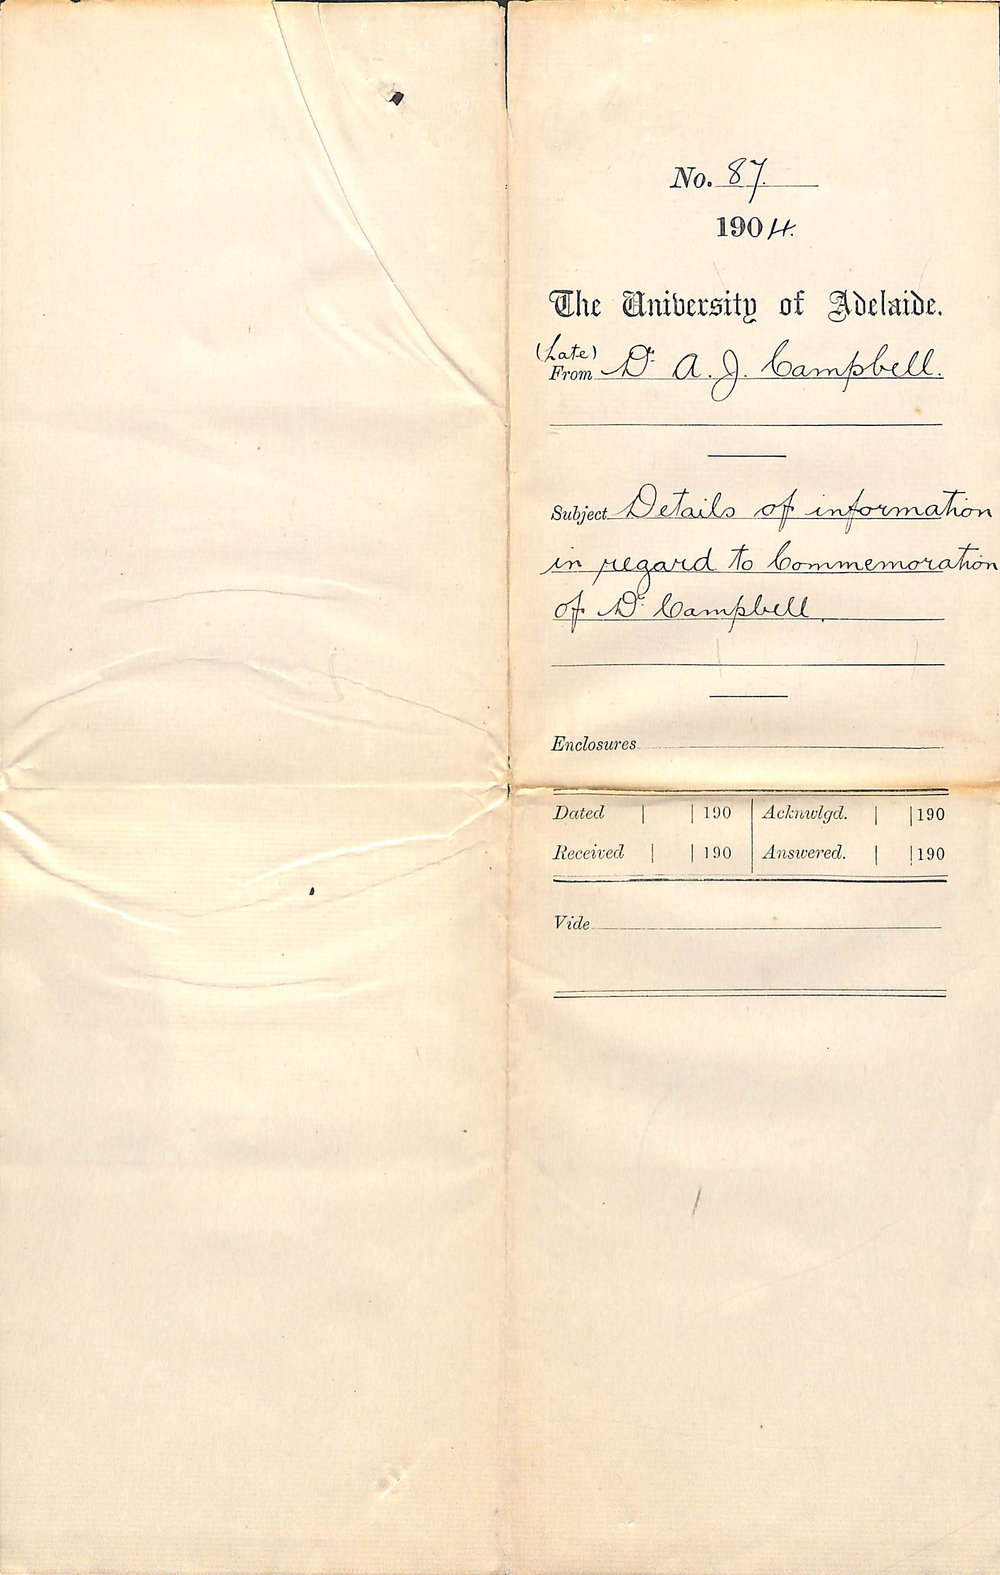 No. 87.
1904.
The University of Adelaide.
(Late)
From Dr. A. J. Campbell.
Subject Details of information
in regard to Commemoration
of Dr. Campbell.
Enclosures
Dated | | 190 | Acknwlgd. | | 190
Received | | 190 | Answered. | | 190
Vide